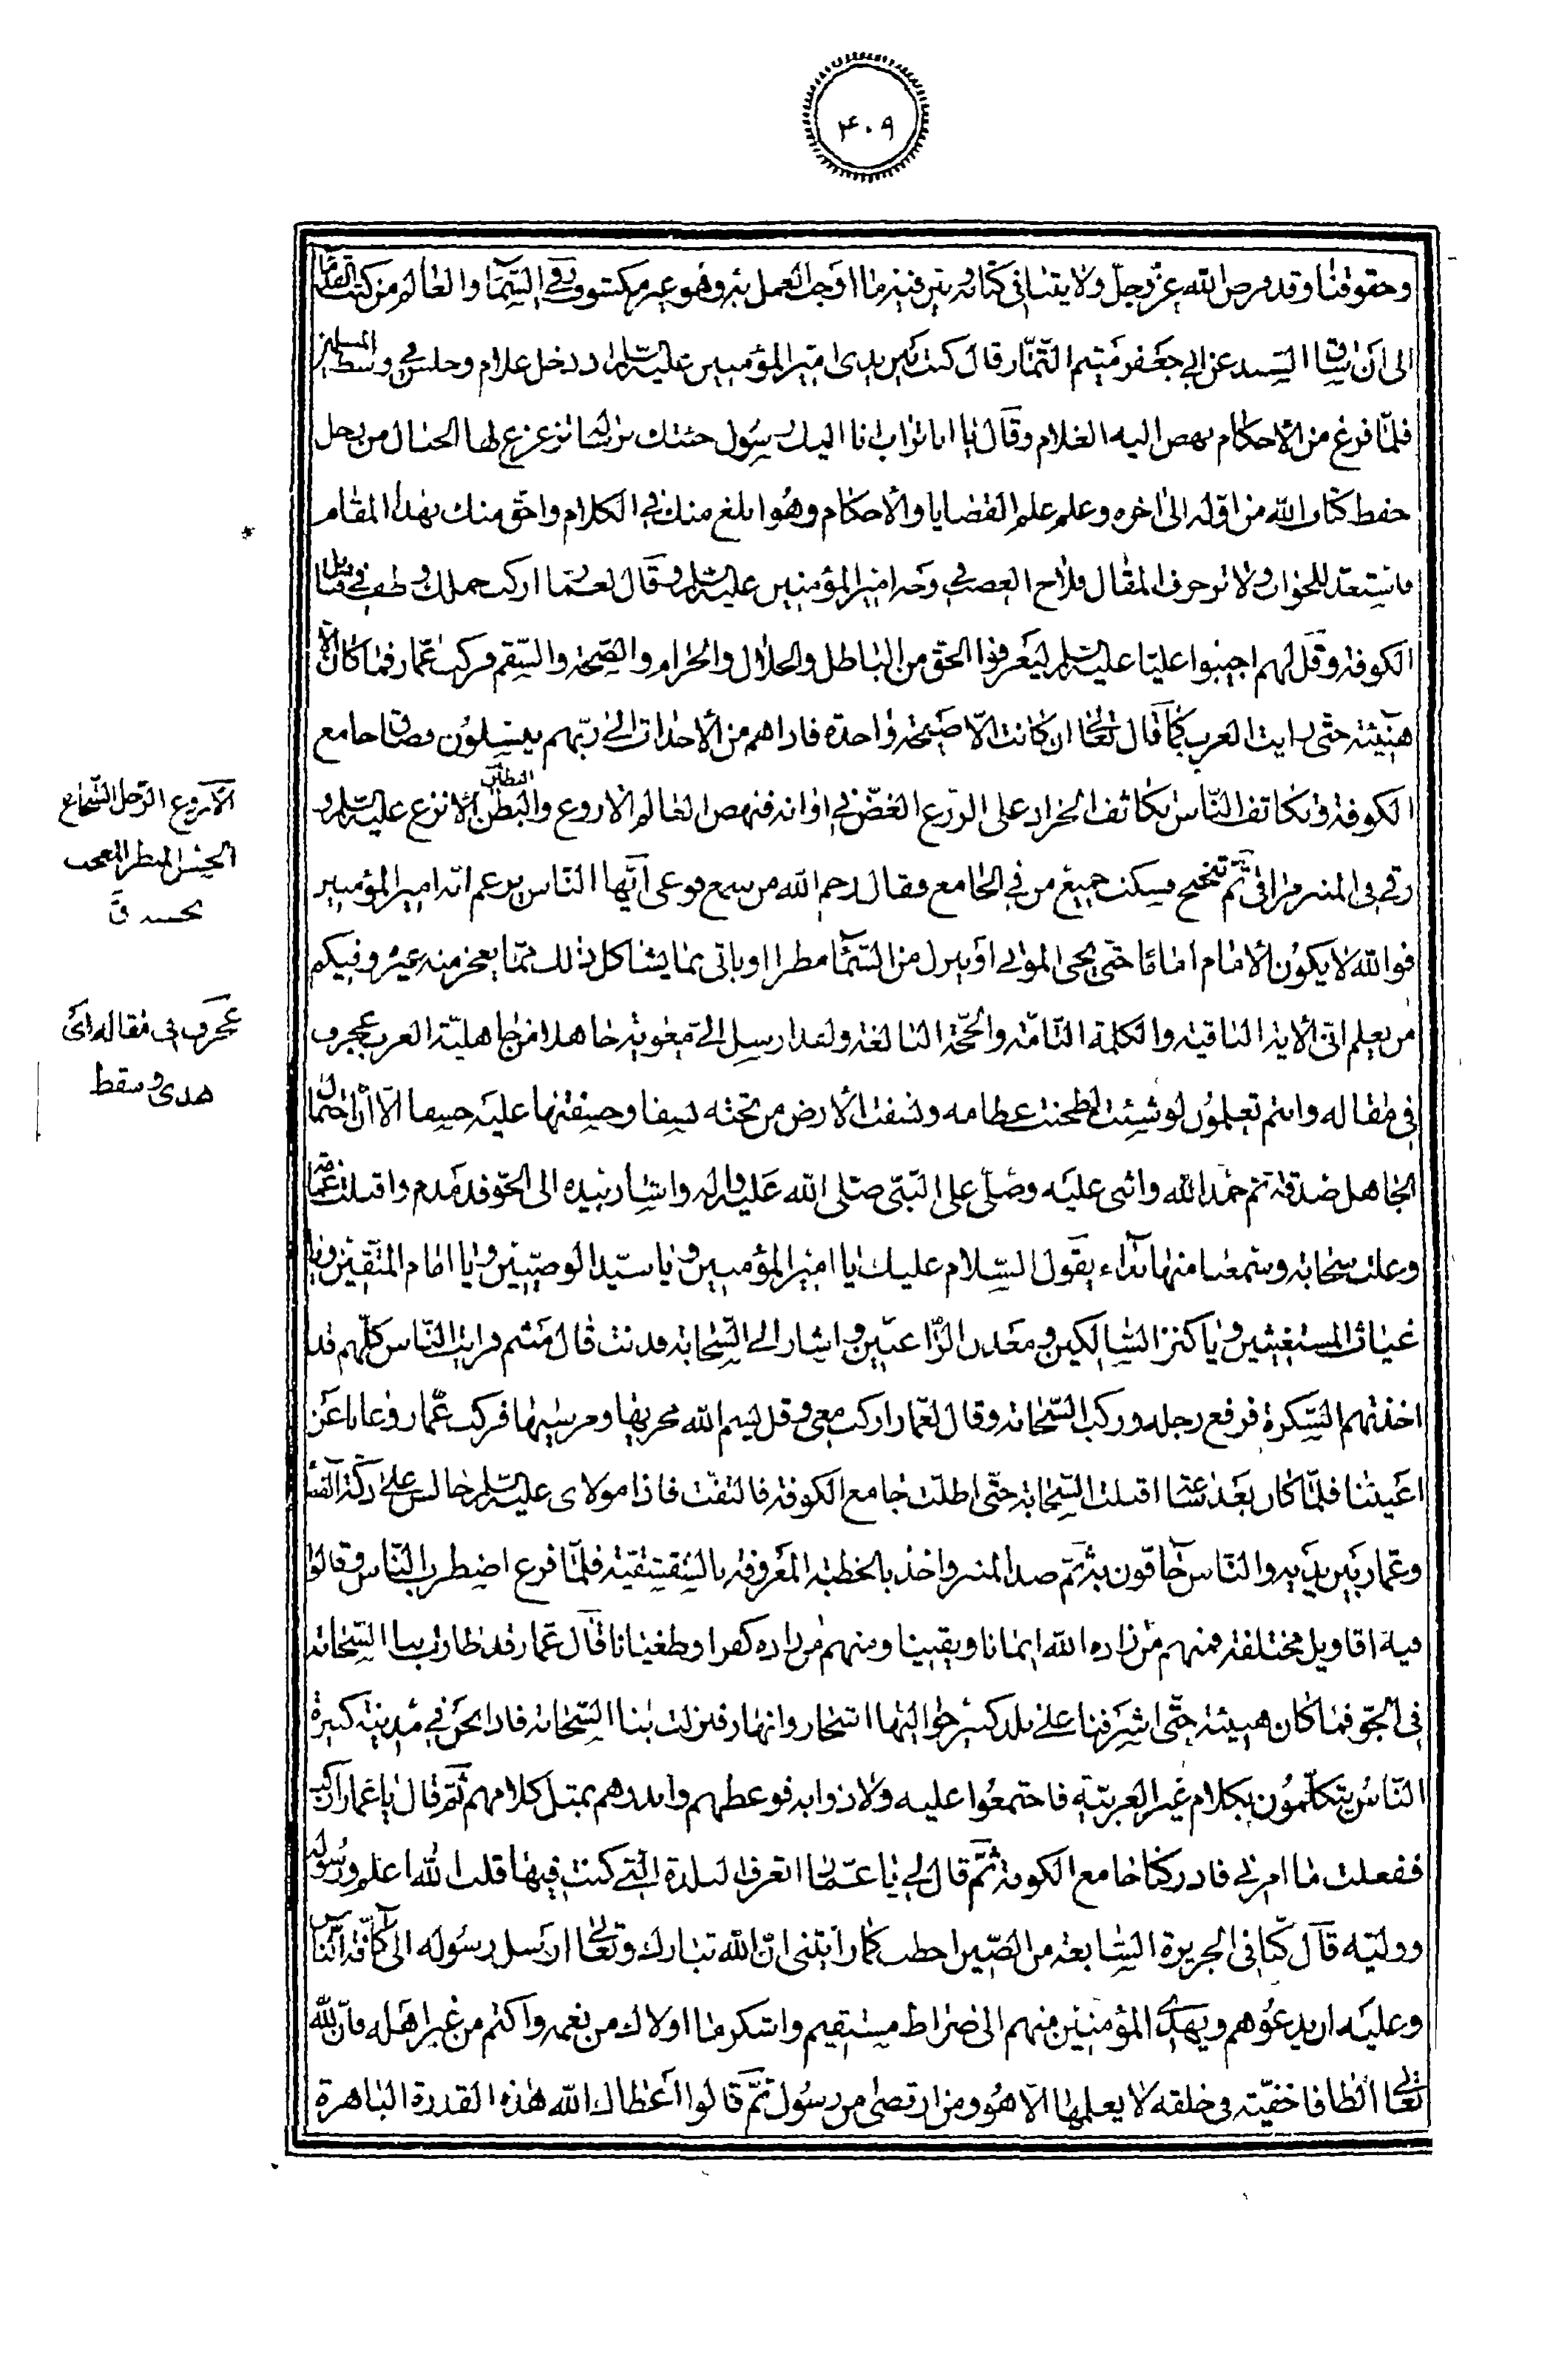 ۴۰۹
وحقوقنا وقد فرض الله عزّ وجلّ ولايتنا في كتابه وبيّن فيه ما اوجب العمل به وهو غير مكشوف وفي السّماء والعالم من كتب القدماء
الى ان ساق السند عن ابي جعفر ميثم التّمار قال كنت بين يدي امير المؤمنين عليه السّلام اذ دخل غلام وجلس في وسط المسلمين
فلمّا فرغ من الأحكام نهض اليه الغلام وقال يا ابا تراب انا اليك رسول جئتك برسالة تزعزع لها الجبال من رجل
حفظ كتاب الله من اوّله الى اخره وعلم علم القضايا والأحكام وهو ابلغ منك في الكلام واحقّ منك بهذا المقام
فاستعدّ للجواب ولا تزخرف المقال فلاح الغضب في وجه امير المؤمنين عليه السّلام وقال لعمّار اركب جملك وطف في قبايل
الكوفة وقل لهم اجيبوا عليّا عليه السّلام ليعرفوا الحق من الباطل والحلال والحرام والصّحة والسّقم فركب عمّار فما كان الّا
هنيئة حتّى رايت العرب كما قال تعالى ان كانت الّا صيحة واحدة فاذاهم من الأجداث الى ربّهم ينسلون فضاق جامع
الكوفة وتكاثف النّاس تكاثف الجراد على الزرع الغضّ في اوانه فنهض العالم الاروع والبطن الأنزع عليه السّلام و
البطين
رقى في المنبر مراقي ثمّ تنحنح فسكت جميع من في الجامع فقال رحم الله من سمع فوعى ايّها النّاس يزعم انّه امير المؤمنين
فوالله لا يكون الأمام اماما حتّى يحيى الموتى او ينزل من السّماء مطرا او ياتي بما يشاكل ذلك ممّا يعجز منه غيره وفيكم
من يعلم انّي الأية الباقية والكلمة التّامّة والحجّة البالغة ولقد ارسل الىّ معوية جاهلا من جاهليّة العرب عجرف
في مقاله وانتم تعلمون لو شئت لطحنت عظامه ونسفت الأرض من تحته نسفا وخسفتها عليه خسفا الّا انّ احتمال
الجاهل صدقة ثم حمد الله واثنى عليه وصلّى على النّبي صلى الله عليه واله واشار بيده الى الجوّ فدمدم واقبلت غمامة
وعلت سحابة وسمعنا منها نداء يقول السّلام عليك يا امير المؤمنين ويا سيّد الوصيّين ويا امام المتّقين ويا
غياث المستغيثين ويا كنز المساكين ومعدن الرّاغبين واشار الى السّحابة فدنت قال ميثم فرايت النّاس كلّهم قد
اخذتهم السّكرة فرفع رجله وركب السّحابة وقال لعمّار اركب معي وقل بسم الله مجريها ومرسيها فركب عمّار وغابا عن
اعيننا فلمّا كان بعد ساعة اقبلت السّحابة حتّى اظلّت جامع الكوفة فالتفتّ فاذا مولاي عليه السّلام جالس على دكّة القضا
وعمّار بين يديه والنّاس حافّون به ثمّ صعد المنبر واخذ بالخطبة المعروفة بالشقشقيّة فلمّا فرغ اضطرب النّاس وقالوا
فيه اقاويل مختلفة فمنهم من زاده الله ايمانا ويقينا ومنهم من زاده كفرا وطغيانا قال عمّار قد طارت بنا السّحابة
في الجوّ فما كان هنيئة حتّى اشرفنا على بلد كبير حواليها اشجار وانهار فنزلت بنا السّحابة فاذا نحن في مدينة كبيرة
النّاس يتكلّمون بكلام غير العربيّة فاجتمعوا عليه ولاذوا به فوعظهم وانذرهم بمثل كلامهم ثمّ قال يا عمّار اركب
ففعلت ما امرني فادركنا جامع الكوفة ثمّ قال لي يا عمّار اتعرف البلدة الّتي كنت فيها قلت الله اعلم ورسوله
ووليّه قال كنّا في الجزيرة السّابعة من الصّين اخطب كما رايتني انّ الله تبارك وتعالى ارسل رسوله الى كافّة النّاس
وعليه ان يدعوهم ويهدي المؤمنين منهم الى صراط مستقيم واشكر ما اولاك من نعمه واكتم من غير اهله فانّ لله
تعالى الطافا خفيّة في خلقه لا يعلمها الّا هو ومن ارتضى من رسول ثمّ قالوا اعطاك الله هذه القدرة الباهرة
الأروع الرّجل الشّجاع
الحسن المنظر المعجب
بحسنه ق
عجرف في مقاله اي
هذى وسقط